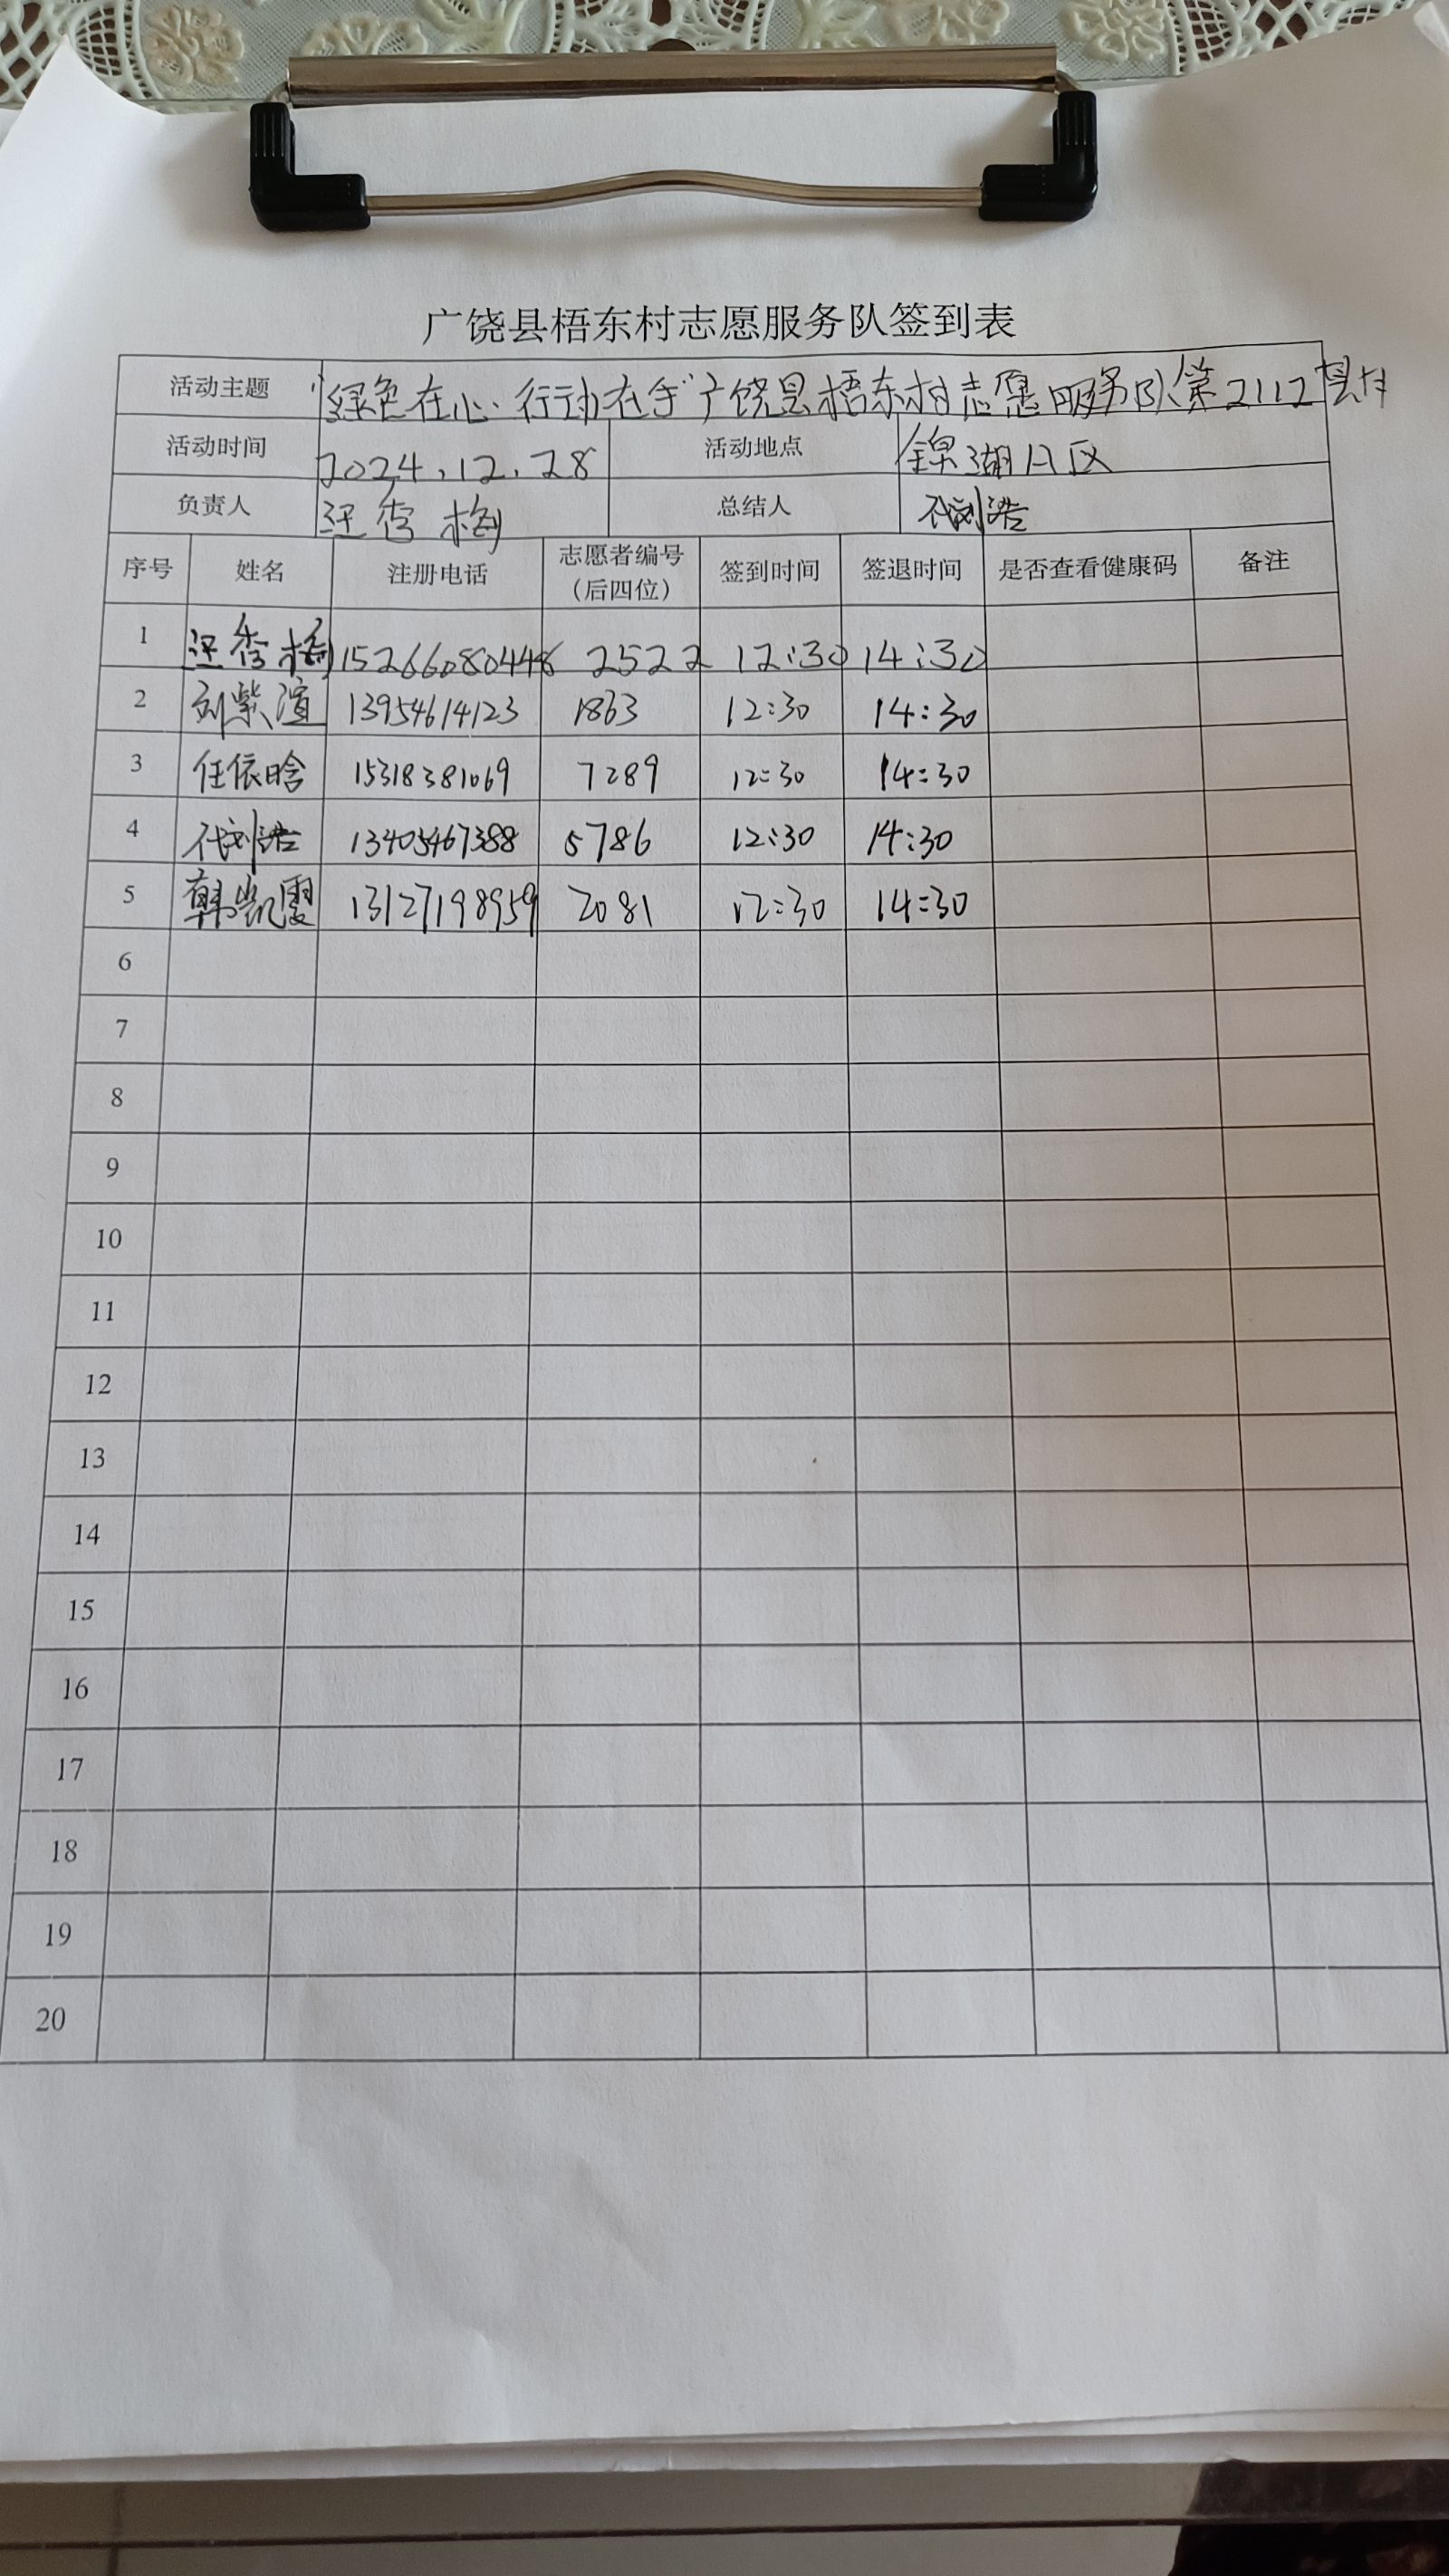 广饶县梧东村志愿服务队签到表
活动主题 "绿色在心·行动在手"广饶县梧东村志愿服务队第2112期
活动时间 2024.12.28 活动地点 锦湖小区
负责人 汪秀梅 总结人 代刘浩
序号 姓名 注册电话 志愿者编号（后四位） 签到时间 签退时间 是否查看健康码 备注
1 汪秀梅 15266080448 2522 12:30 14:30
2 刘紫渲 13954614123 1863 12:30 14:30
3 任依晗 15318381069 7289 12:30 14:30
4 代刘浩 13405467388 5786 12:30 14:30
5 韩凯雯 13127198959 2081 12:30 14:30
6
7
8
9
10
11
12
13
14
15
16
17
18
19
20